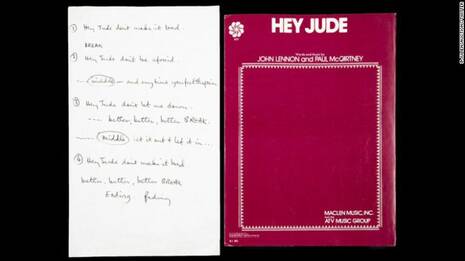 ① Hey Jude dont make it bad
BREAK
② Hey Jude dont be afraid.
middle and anytime you feel the pain
③ Hey Jude dont let me down.
better, better, better BREAK.
middle let it out & let it in...
④ Hey Jude dont make it bad
better, better, better BREAK
Ending Fading
HEY JUDE
Words and Music by
JOHN LENNON and PAUL McCARTNEY
MACLEN MUSIC, INC.
ATV MUSIC GROUP